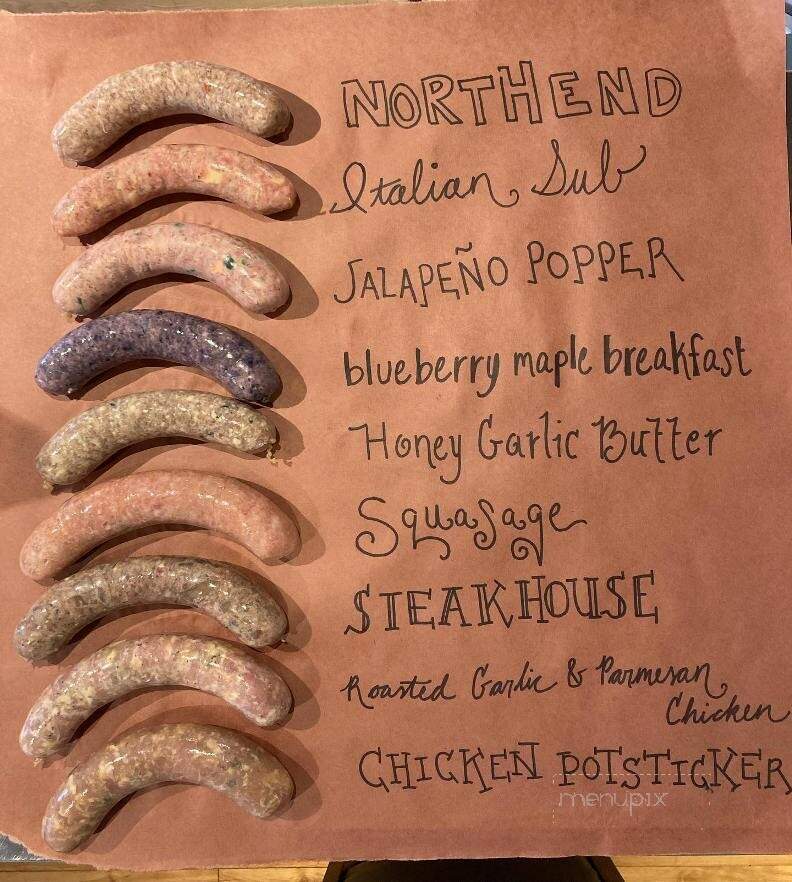 NORTHEND
Italian Sub
JALAPEÑO POPPER
blueberry maple breakfast
Honey Garlic Butter
Squasage
STEAKHOUSE
Roasted Garlic & Parmesan
Chicken
CHICKEN POTSTICKER
menupix